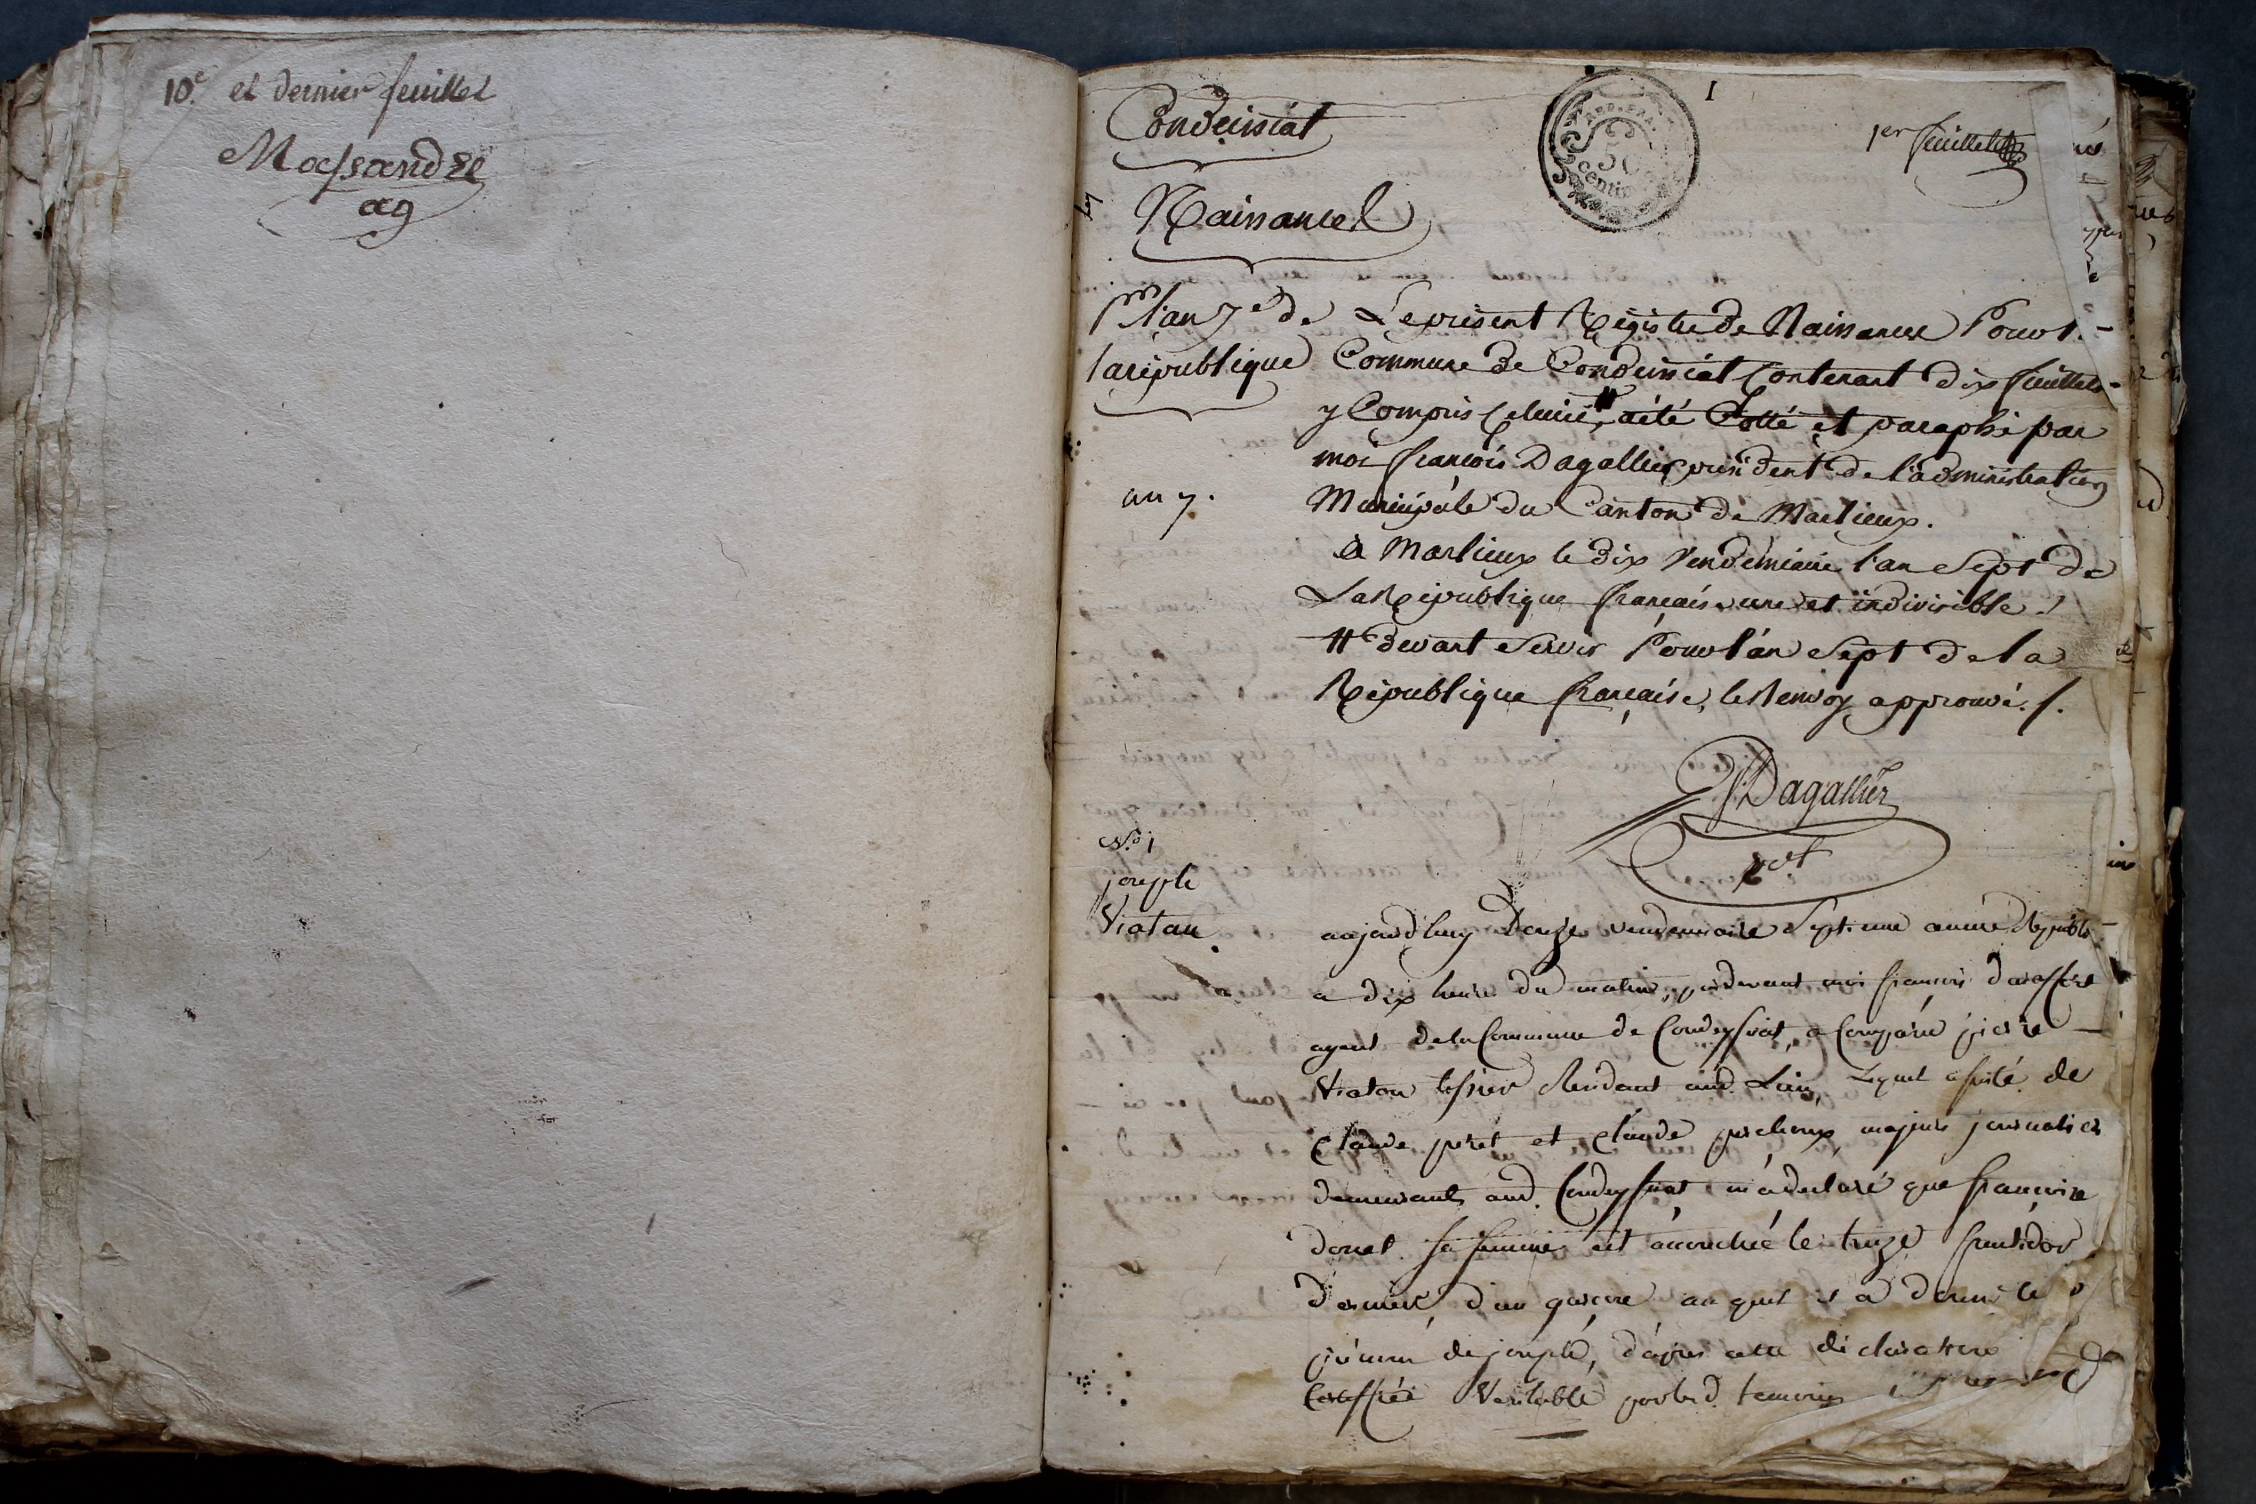 10.e et dernier feuillet
Massandre
ag
Condeissiat
REP. FRA.
50
centi
1
1er feuillet
Naissance
Pr l'an 7e de
la république
an 7.
Le présent Régistre de Naissance Pour l.
Commune de Condeissiat Contenant dix feuillets
y Compris Celuici # a été Cotté et paraphé par
moi françois Dagallier président de l'administration
Municipale du Canton de Marlieux.
à Marlieux le dix Vendemiaire l'an Sept de
La République français une et indivisible /
# devant Servir Pour l'an Sept de la
République française, le Renvoy approuvé. /.
Dagallier
pdt
No. 1
joseph
Viatau
aujourd'huy Douze vendemiaire Septieme année Republ
a dix heures du matin, pardevant moi françois
agent de la Commune de Condeyssiat, a Comparu pierre
Viatou tissier Residant aud. Lieu, Lequel assisté de
Claude peret et Claude percheux majeurs journalier
demeurants aud. Condeyssiat m'a declaré que françoise
donet sa femme est accouchée le treize fructidor
dernier, d'un garcon auquel il a donné le
prénom de joseph, d'apres cette déclaration
Certiffiée Veritable par les d. temoins